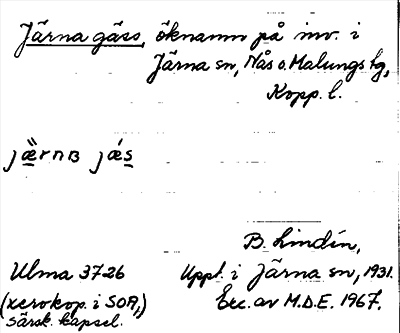 Järna gäss, öknamn på inv. i
Järna sn, Nås o. Malungs tg,
Kopp. l.
jæ̈rnʙ jǽs
B. Lindén,
Ulma 3726 Uppt. i Järna sn, 1931.
(xerokop. i SOA,) Exc. av M.D.E. 1967.
särsk. kapsel.